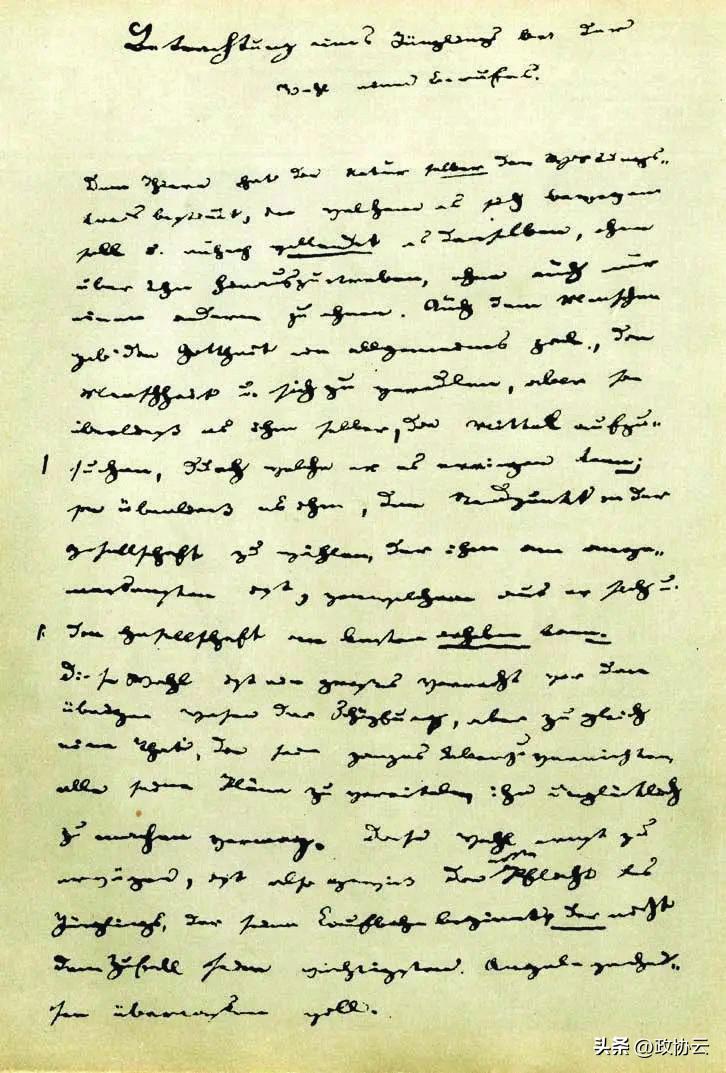 Betrachtung eines Jünglings bei der
Wahl eines Berufes.
Dem Thiere hat die Natur selber den Wirkungs-
kreis bestimmt, in welchem es sich bewegen
soll u. ruhig vollendet es denselben, ohne
über ihn hinauszustreben, ohne auch nur
einen anderen zu ahnen. Auch dem Menschen
gab die Gottheit ein allgemeines Ziel, die
Menschheit u. sich zu veredlen, aber sie
überließ es ihm selber, die Mittel aufzu-
suchen, durch welche er es erringen kann;
sie überließ es ihm, den Standpunkt in der
Gesellschaft zu wählen, der ihm am ange-
messensten ist, von welchem aus er sich u.
die Gesellschaft am besten erheben kann.
Diese Wahl ist ein großes Vorrecht vor den
übrigen Wesen der Schöpfung, aber zugleich
eine That, die sein ganzes Leben zu vernichten,
alle seine Pläne zu vereiteln, ihn unglücklich
zu machen vermag. Diese Wahl ernst zu
erwägen, ist also gewiß die erste Pflicht des
Jünglings, der seine Laufbahn beginnt, der nicht
dem Zufall seine wichtigsten Angelegenhei-
ten überlassen will.
头条 @政协云